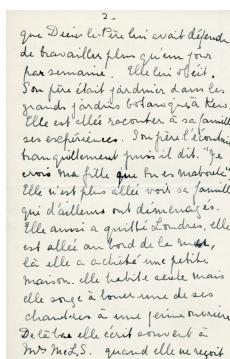 2.
que Dieu-le-Père lui avait défendu
de travailler plus qu'un jour
par semaine. Elle lui obéit.
Son père était jardinier dans les
grands jardins botaniques à Kew.
Elle est allée raconter à sa famille
ses expériences. Son père l'écoutait
tranquillement puis il dit. "Je
crois ma fille que tu es maboule".
Elle n'est plus allée voir sa famille
qui d'ailleurs ont déménagés.
Elle aussi a quitté Londres, elle
est allée au bord de la mer,
là elle a acheté une petite
maison. elle habite seule mais
elle songe à louer une de ses
chambres à une jeune ouvrière
De là bas elle écrit souvent à
Mrs McL.S. quand elle reçoit